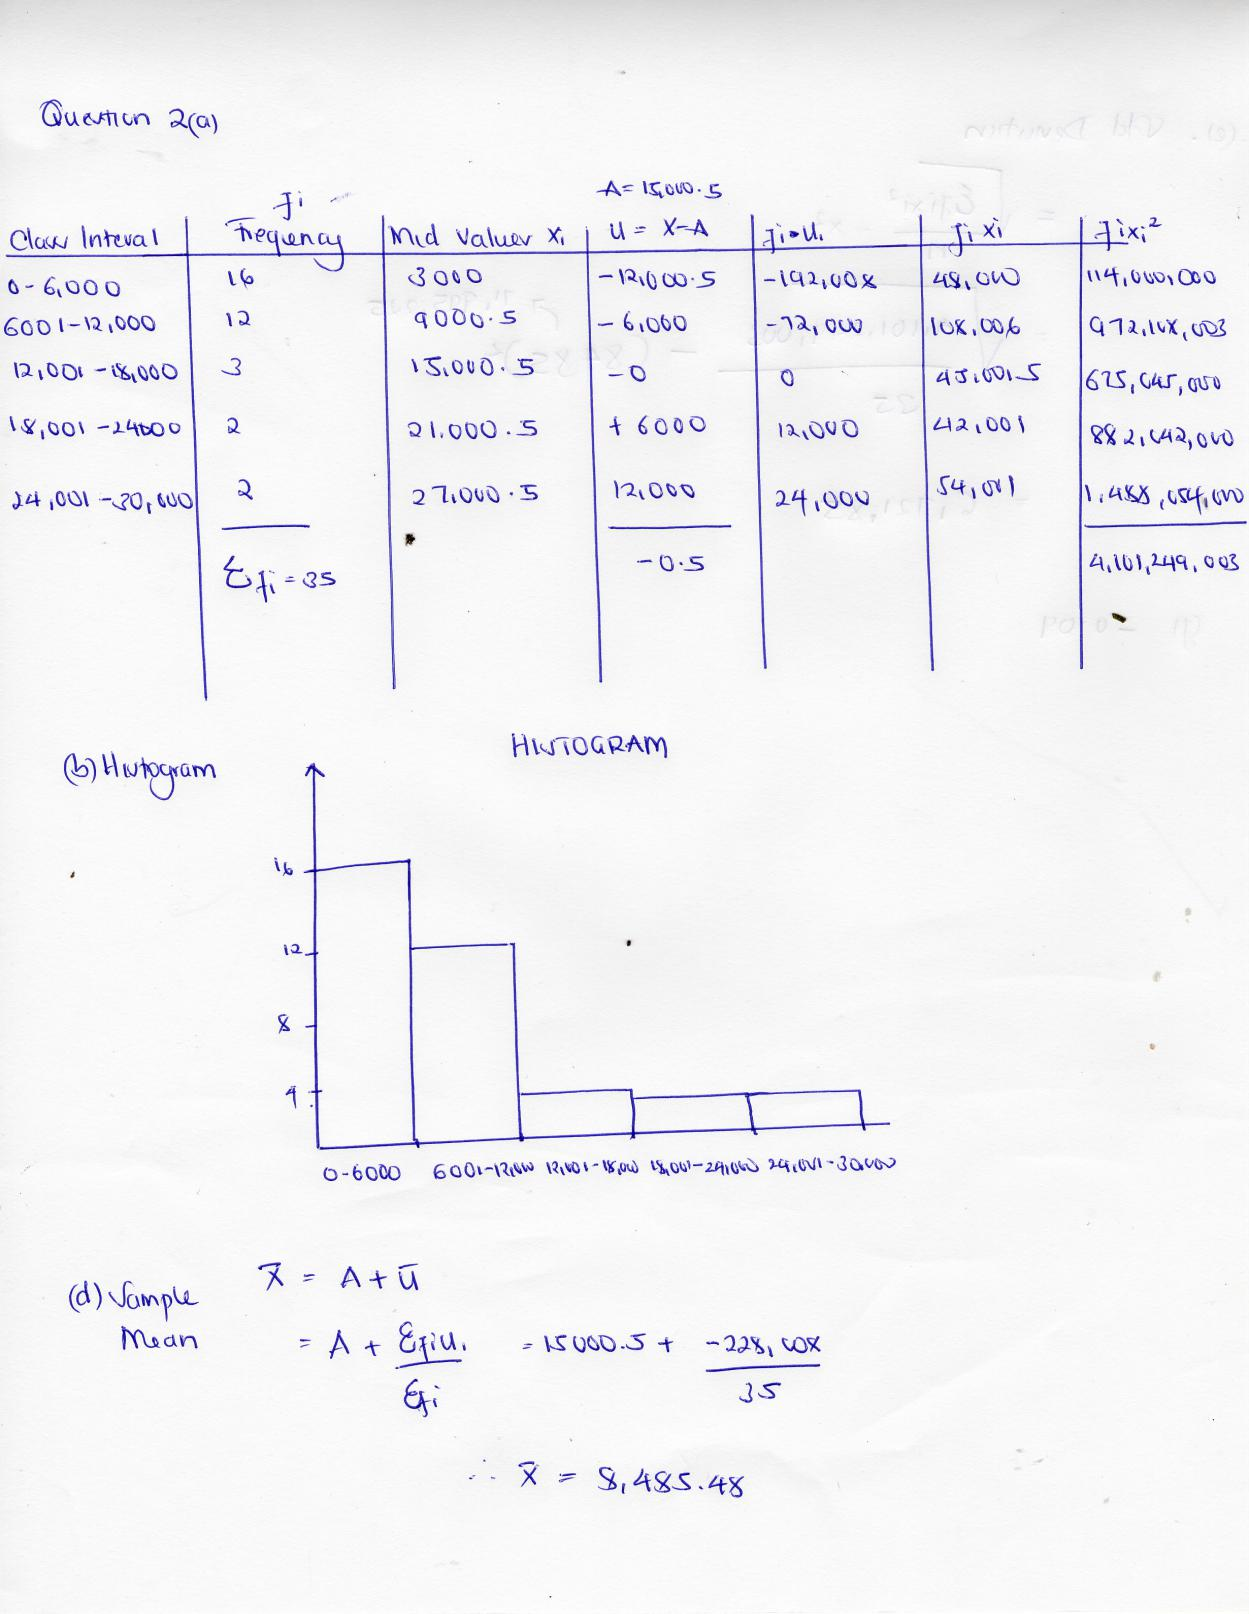 Question 2(a)
A = 15,000.5
Class Interval fi Frequency Mid Values xi U = X-A fi•Ui fi xi fixi²
0-6,000 16 3000 -12,000.5 -192,008 48,000 114,000,000
6001-12,000 12 9000.5 -6,000 -72,000 108,006 972,108,003
12,001-18,000 3 15,000.5 -0 0 45,001.5 675,045,000
18,001-24000 2 21,000.5 +6000 12,000 42,001 882,042,000
24,001-30,000 2 27,000.5 12,000 24,000 54,001 1,458,054,000
Σfi = 35 -0.5 4,101,249,003
HISTOGRAM
(b) Histogram
16
12
8
4
0-6000 6001-12,000 12,001-18,000 18,001-24,000 24,001-30,000
(d) Sample Mean
X̄ = A + Ū
= A + Σfiui / Σfi = 15000.5 + -228,008 / 35
∴ X̄ = 8,485.48